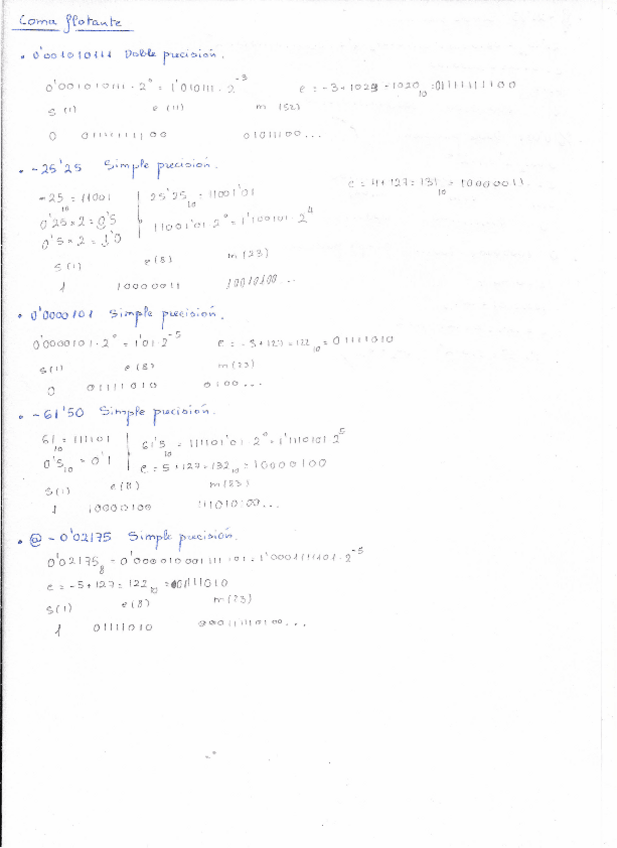 Coma flotante
• 0'001010111 Doble precisión.
0'001010111 · 2⁰ = 1'010111 · 2⁻³ e = -3 + 1023 = 1020₁₀ = 01111111100
S (1) e (11) m (52)
0 01111111100 01011100...
• -25'25 Simple precisión.
-25₁₀ = 11001 | 25'25₁₀ = 11001'01 e = 4+127 = 131₁₀ = 10000011
0'25 x 2 = 0'5 | 11001'01 · 2⁰ = 1'100101 · 2⁴
0'5 x 2 = 1'0
S (1) e (8) m (23)
1 10000011 10010100...
• 0'0000101 Simple precisión.
0'0000101 · 2⁰ = 1'01 · 2⁻⁵ e = -5 + 127 = 122₁₀ = 01111010
S (1) e (8) m (23)
0 01111010 0100...
• -61'50 Simple precisión.
61₁₀ = 111101 | 61'5₁₀ = 2⁰ = 1'1110101 · 2⁵
0'5₁₀ = 0'1 | e = 5 + 127 = 132₁₀ = 10000100
S (1) e (8) m (23)
1 10000100
• @ - 0'02175 Simple precisión.
0'02175₈ = 2⁻⁵
e = -5 + 127 = 122₁₀ = 01111010
S (1) e (8) m (23)
1 01111010